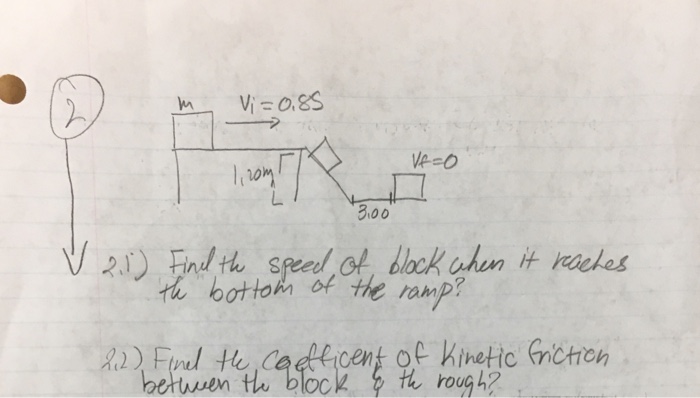 2
m Vi = 0.85
1.20m
VF=0
3.00
2.1) Find the speed of block when it reaches
the bottom of the ramp?
2.2) Find the coefficent of Kinetic friction
between the block & the rough?